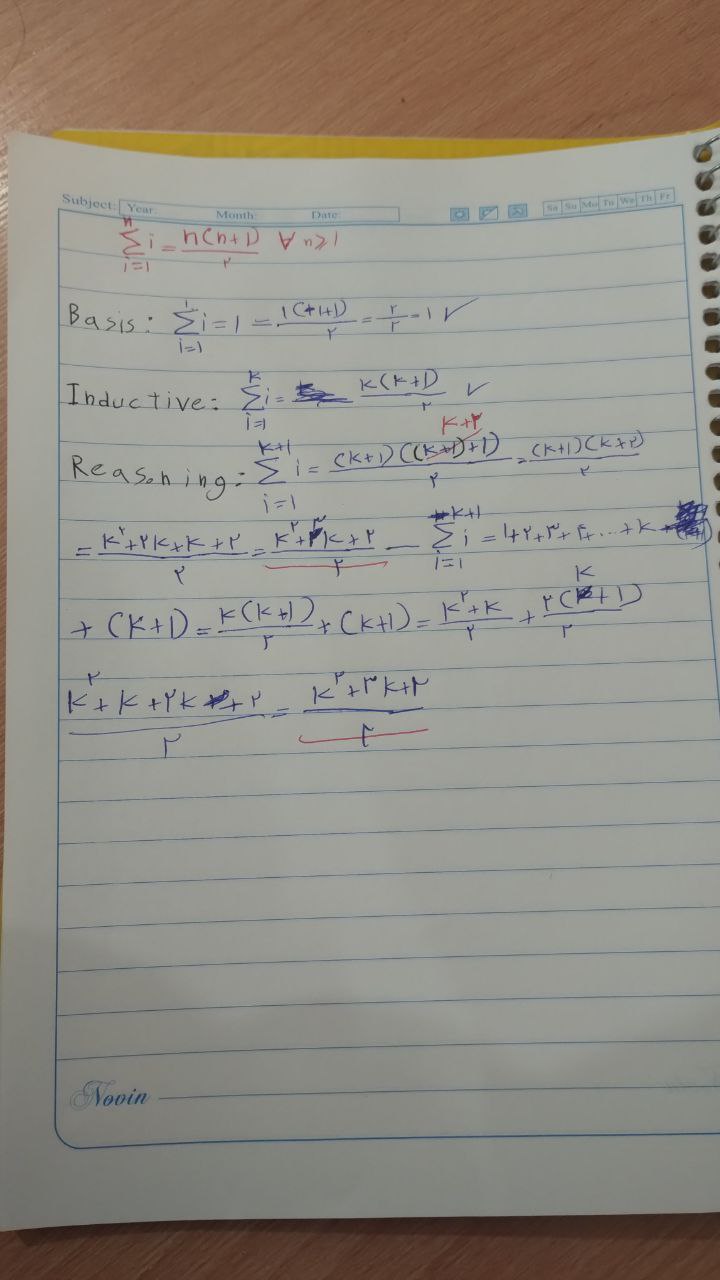 Subject: Year: Month: Date: Sa Su Mo Tu We Th Fr
n∑i=1 i = n(n+1)/۲ ∀ n≥1
Basis: 1∑i=1 i = 1 = 1(1+1)/۲ = ۲/۲ = 1 ✓
Inductive: k∑i=1 i = k(k+1)/۲ ✓
k+۲
Reasoning: k+1∑i=1 i = (k+1)((k+1)+1)/۲ = (k+1)(k+۲)/۲
= k²+۲k+k+۲/۲ = k²+۳k+۲/۲ — k+1∑i=1 i = 1+۲+۳+۴+...+k
+ (k+1) = k(k+1)/۲ + (k+1) = k²+k/۲ + ۲(k+1)/۲
k²+k+۲k+۲/۲ = k²+۳k+۲/۲
Novin